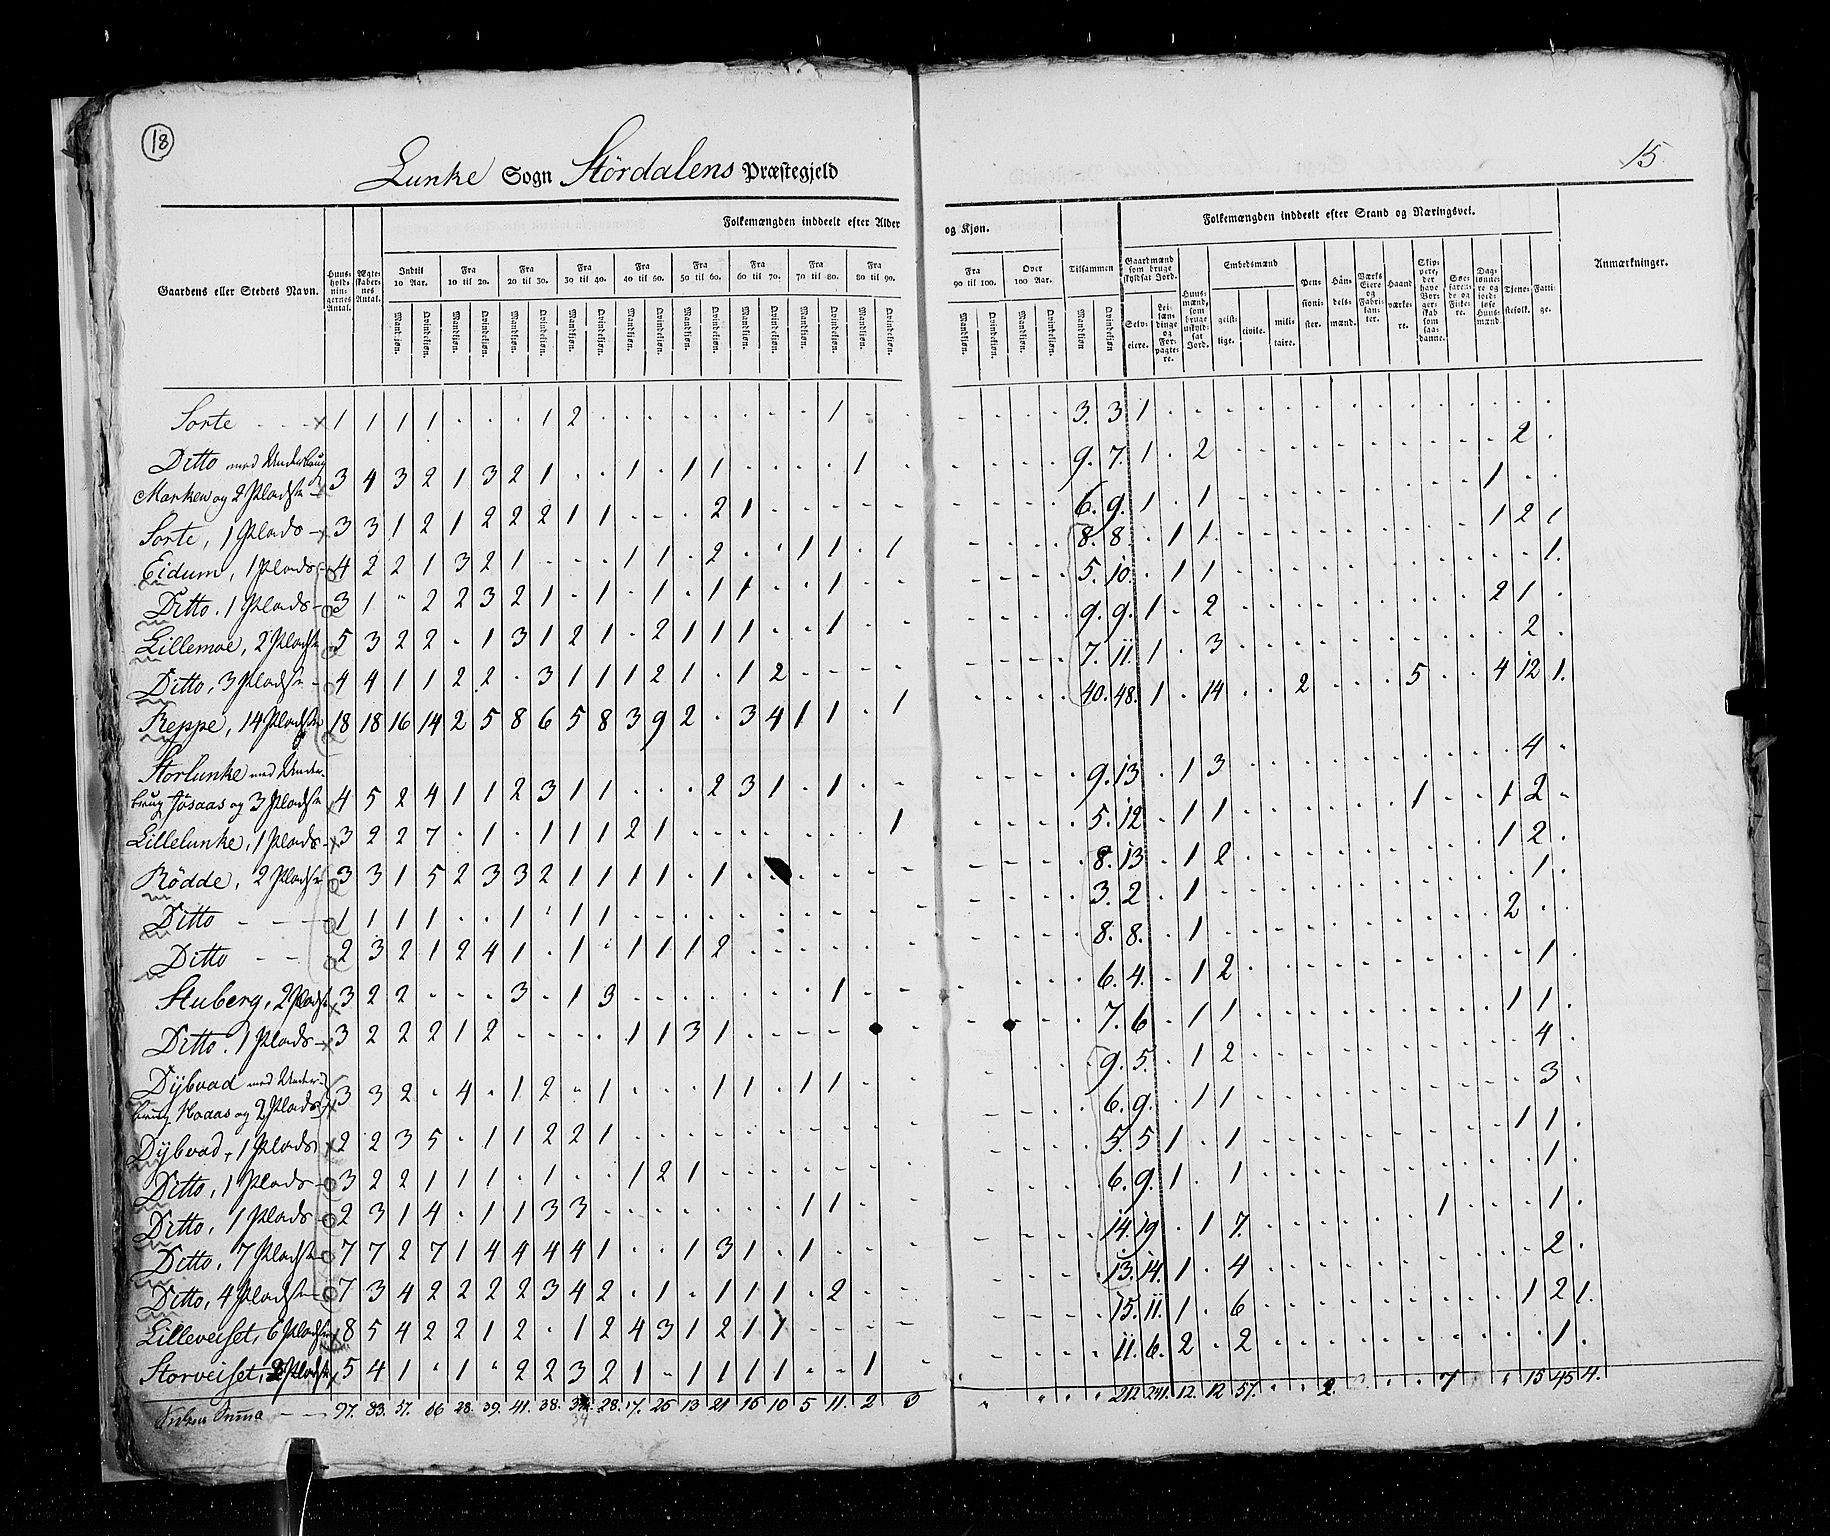 18
15
Lunke Sogn Stördalens Præstegjeld
Gaardens eller Stedets Navn.
Huus-holdningernes Antal.
Ægteskabernes Antal.
Folkemængden inddeelt efter Alder og Kjøn.
Indtil 10 Aar. Fra 10 til 20. Fra 20 til 30. Fra 30 til 40. Fra 40 til 50. Fra 50 til 60. Fra 60 til 70. Fra 70 til 80. Fra 80 til 90. Fra 90 til 100. Over 100 Aar. Tilsammen
Mandkjøn. Qvindekjøn.
Folkemængden inddeelt efter Stand og Næringsvei.
Gaardmænd som bruge skyldsat Jord. Selveiere. Leilændinge og Forpagtere.
Huusmænd, som bruge uskyldsat Jord.
Embedsmænd geistlige. civile. militaire.
Pensionister. Handelsmænd. Værks Eiere og Fabrikanter. Haandværkere.
Skippere, der have Borgerskab som saadanne.
Søefarende og Fiskere. Dagslønnere og jordløse Huusmænd. Tjenestefolk. Fattige.
Anmærkninger.
Sorte - - - x 1 1 1 1 . . . 1 2 . . . . . . . . 1 . . - - - - 3. 3 1
Ditto med Underbrug
Marken og 2 Pladse x 3 4 3 2 1 3 2 1 . . 1 . 1 1 . . . . 1 . 9. 7. 1 . 2 2
Sorte, 1 Plads x 3 3 1 2 1 2 2 2 1 1 . . . 2 1 . . . . . 6. 9. 1 . 1 1
Eidum, 1 Plads 4 2 2 1 3 2 1 . . . 1 1 . 2 . . 1 1 . 1 8. 8. . 1 1 1 2 1
Ditto, 1 Plads 3 1 . 2 2 3 2 1 . 1 . 1 . 1 1 . . 1 . . 5. 10. . 1 1 1.
Lillemoe, 2 Pladse 5 3 2 2 . 1 3 1 2 1 . 2 1 1 1 . . 1 . . 9. 9. 1 . 2 2 1
Ditto, 3 Pladse 4 4 1 1 2 2 . 3 1 1 1 2 1 . 1 2 . . . . 7. 11. 1 . 3 2
Reppe, 14 Pladse 18 18 16 14 2 5 8 6 5 8 3 9 2 . 3 4 1 1 . 1 40. 48. 1 . 14 . . 2 . . . 5 . . 4 12 1.
Storlunke med Under-
brug Jösaas og 3 Pladse 4 5 2 4 1 1 2 3 1 1 . . . 2 3 1 . 1 . . 9. 13 . 1 3 4
Lillelunke, 1 Plads x 3 2 2 7 . 1 . 1 1 1 2 1 . . . . . . . 1 5. 12 . 1 1 1 1 2
Rödde, 2 Pladse 3 3 1 5 2 3 3 2 1 1 1 1 . 1 . . . . . . 8. 13 . 1 2 1 2
Ditto - - - 1 1 1 1 . . 1 . 1 1 . . . . . . . . . . 3. 2. . 1 1
Ditto - - 2 3 2 1 2 4 1 . 1 . 1 1 1 2 . . . . . . 8. 8. . 1 2
Stuberg, 2 Pladse x 3 2 2 . . . 3 . 1 3 . . . . . . . 1 . . 6. 4. . 1 2 1
Ditto. 1 Plads x 3 2 2 2 1 2 . . . . 1 1 3 1 . . . . . . 7. 6 . 1 1 1 1
Dÿbvad med Under-
brug Hoaas og 2 Pladse 3 3 2 . 4 . 1 2 . 1 . . . 1 1 . 1 1 . . 9. 5. . 1 2 4
Dÿbvad, 1 Plads x 2 2 3 5 . 1 1 2 2 1 . . . . . . . . . . 6. 9. . 1 1 3
Ditto, 1 Plads 3 2 2 1 1 1 . 1 . . 1 2 1 . . . . . . . 5. 5 1 . 1 1 1
Ditto, 1 Plads 2 3 1 4 . 1 1 3 3 . . . . . . . 1 1 . . 6. 9. 1 . 1 1
Ditto, 7 Pladse 7 7 2 7 1 4 4 4 4 1 . . 1 3 1 . 1 . . . 14. 19 . 1 7. 1 1
Ditto, 4 Pladse 7 3 4 2 2 2 2 3 4 2 . 1 . 1 1 1 . 2 . . 13. 14. 1 . 4 2
Lilleveiset, 6 Pladse 8 5 4 2 2 1 2 . 1 2 4 3 1 2 1 1 . . . . 15. 11. 1 . 6 1 2 1.
Storveiset, 2 Pladse x 5 4 1 . 1 . 2 2 3 2 1 . 1 1 1 1 . . 1 . 11. 6. 2 . 2 1
97. 83. 57. 66 28. 39. 41. 38. 34 28. 17. 26 13 21 16 10 5 11. 2 3 212 241. 12. 12 57. 2. 7 15 45 4.
34